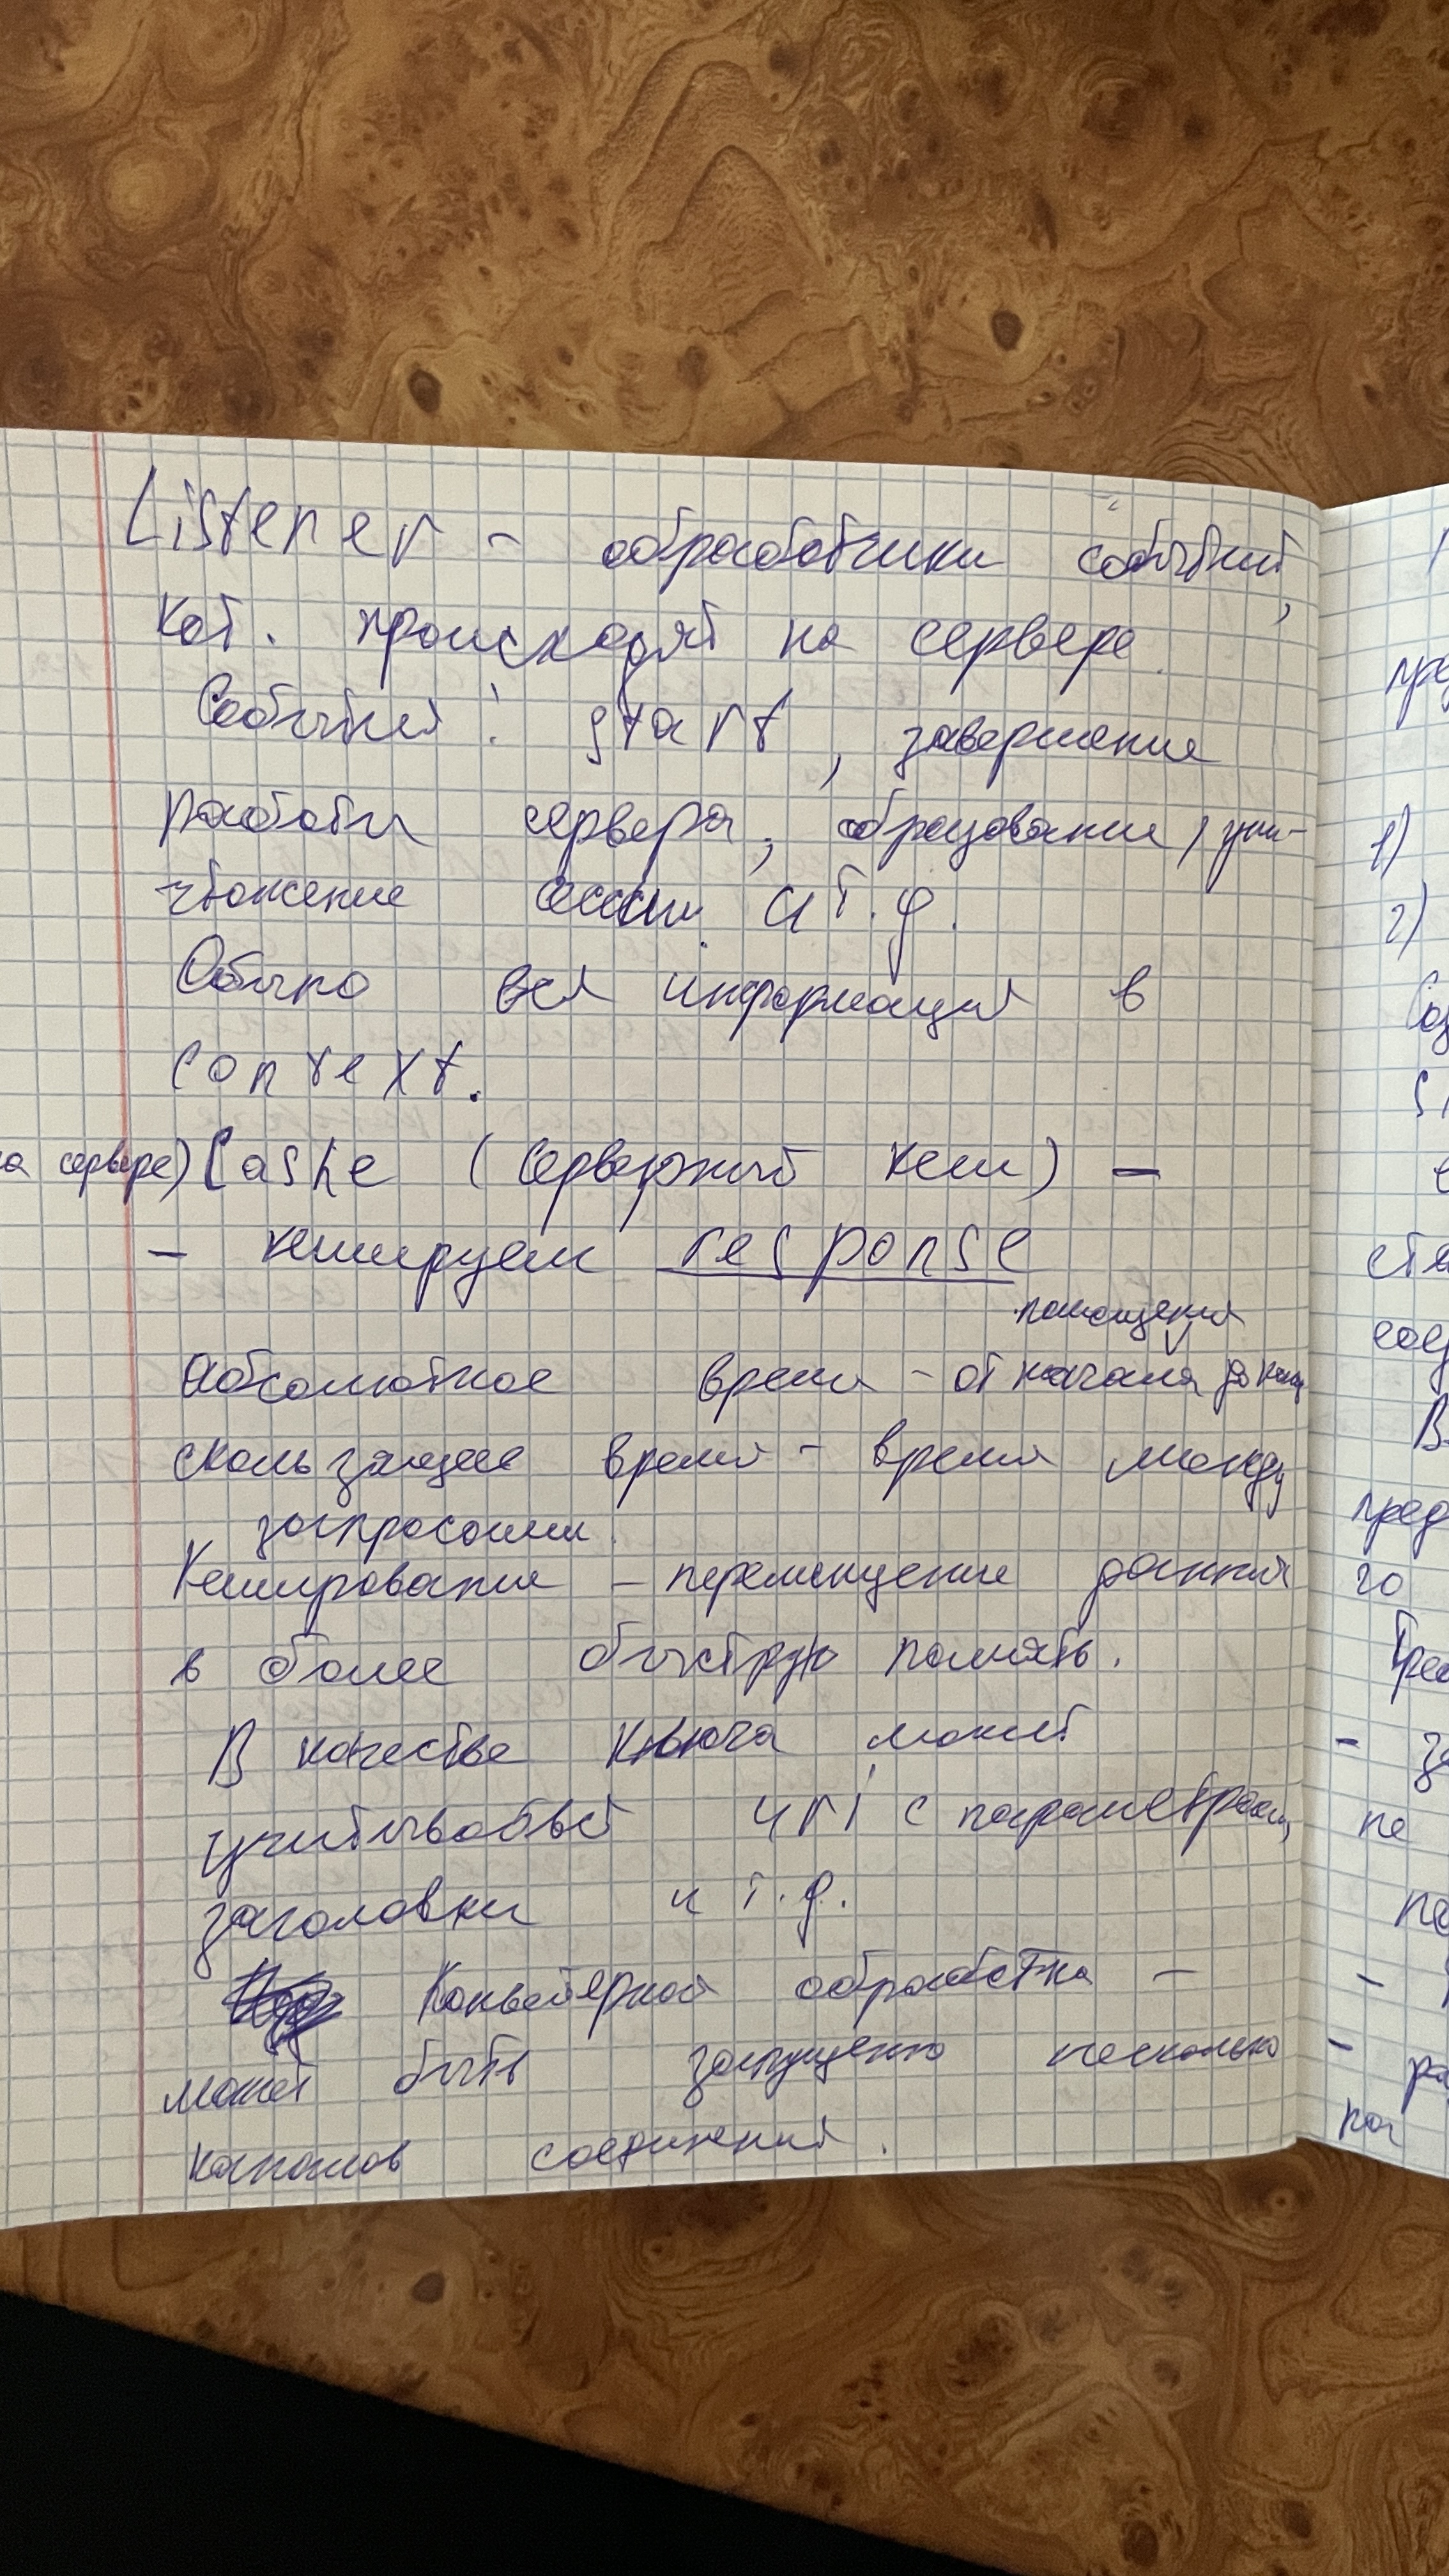 Listener - обработчики событий,
кот. происходят на сервере.
События: start, завершение
работы сервера, образование, уни-
чтожение сессии и т.д.
Обычно вся информация в
context.
а сервере) Cashe (серверный кеш) -
- кешируем response
помещения
Абсолютное время - от начала до конц
скользящее время - время между
запросами.
Кеширование - перемещение данных
в более быструю память.
В качестве ключа может
учитываться uri с параметрами,
заголовки и т.д.
Конвейерная обработка -
может быть запущено несколько
каналов соединения.
1)
2)